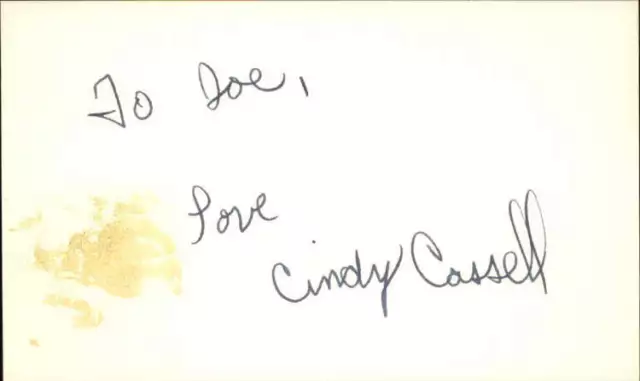 To Joe,
Love
Cindy Cassell